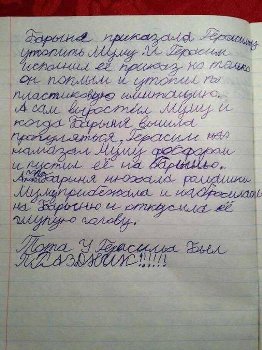 Барыня приказала Герасиму
утопить Муму. И Герасим
исполнил её приказ но только
он поплыл и утопил
пластиковую имитацию.
А сам вырастил Муму и
когда Барыня вышла
прогуляться, Герасим
намазал Муму фосфором
и пустил её на Барыню.
А Барыня нюхала ромашки
Муму прибежала и набросилась
на Барыню и откусила её
глупую голову.
Тота У Герасима Был
ПРАЗДНИК!!!!!